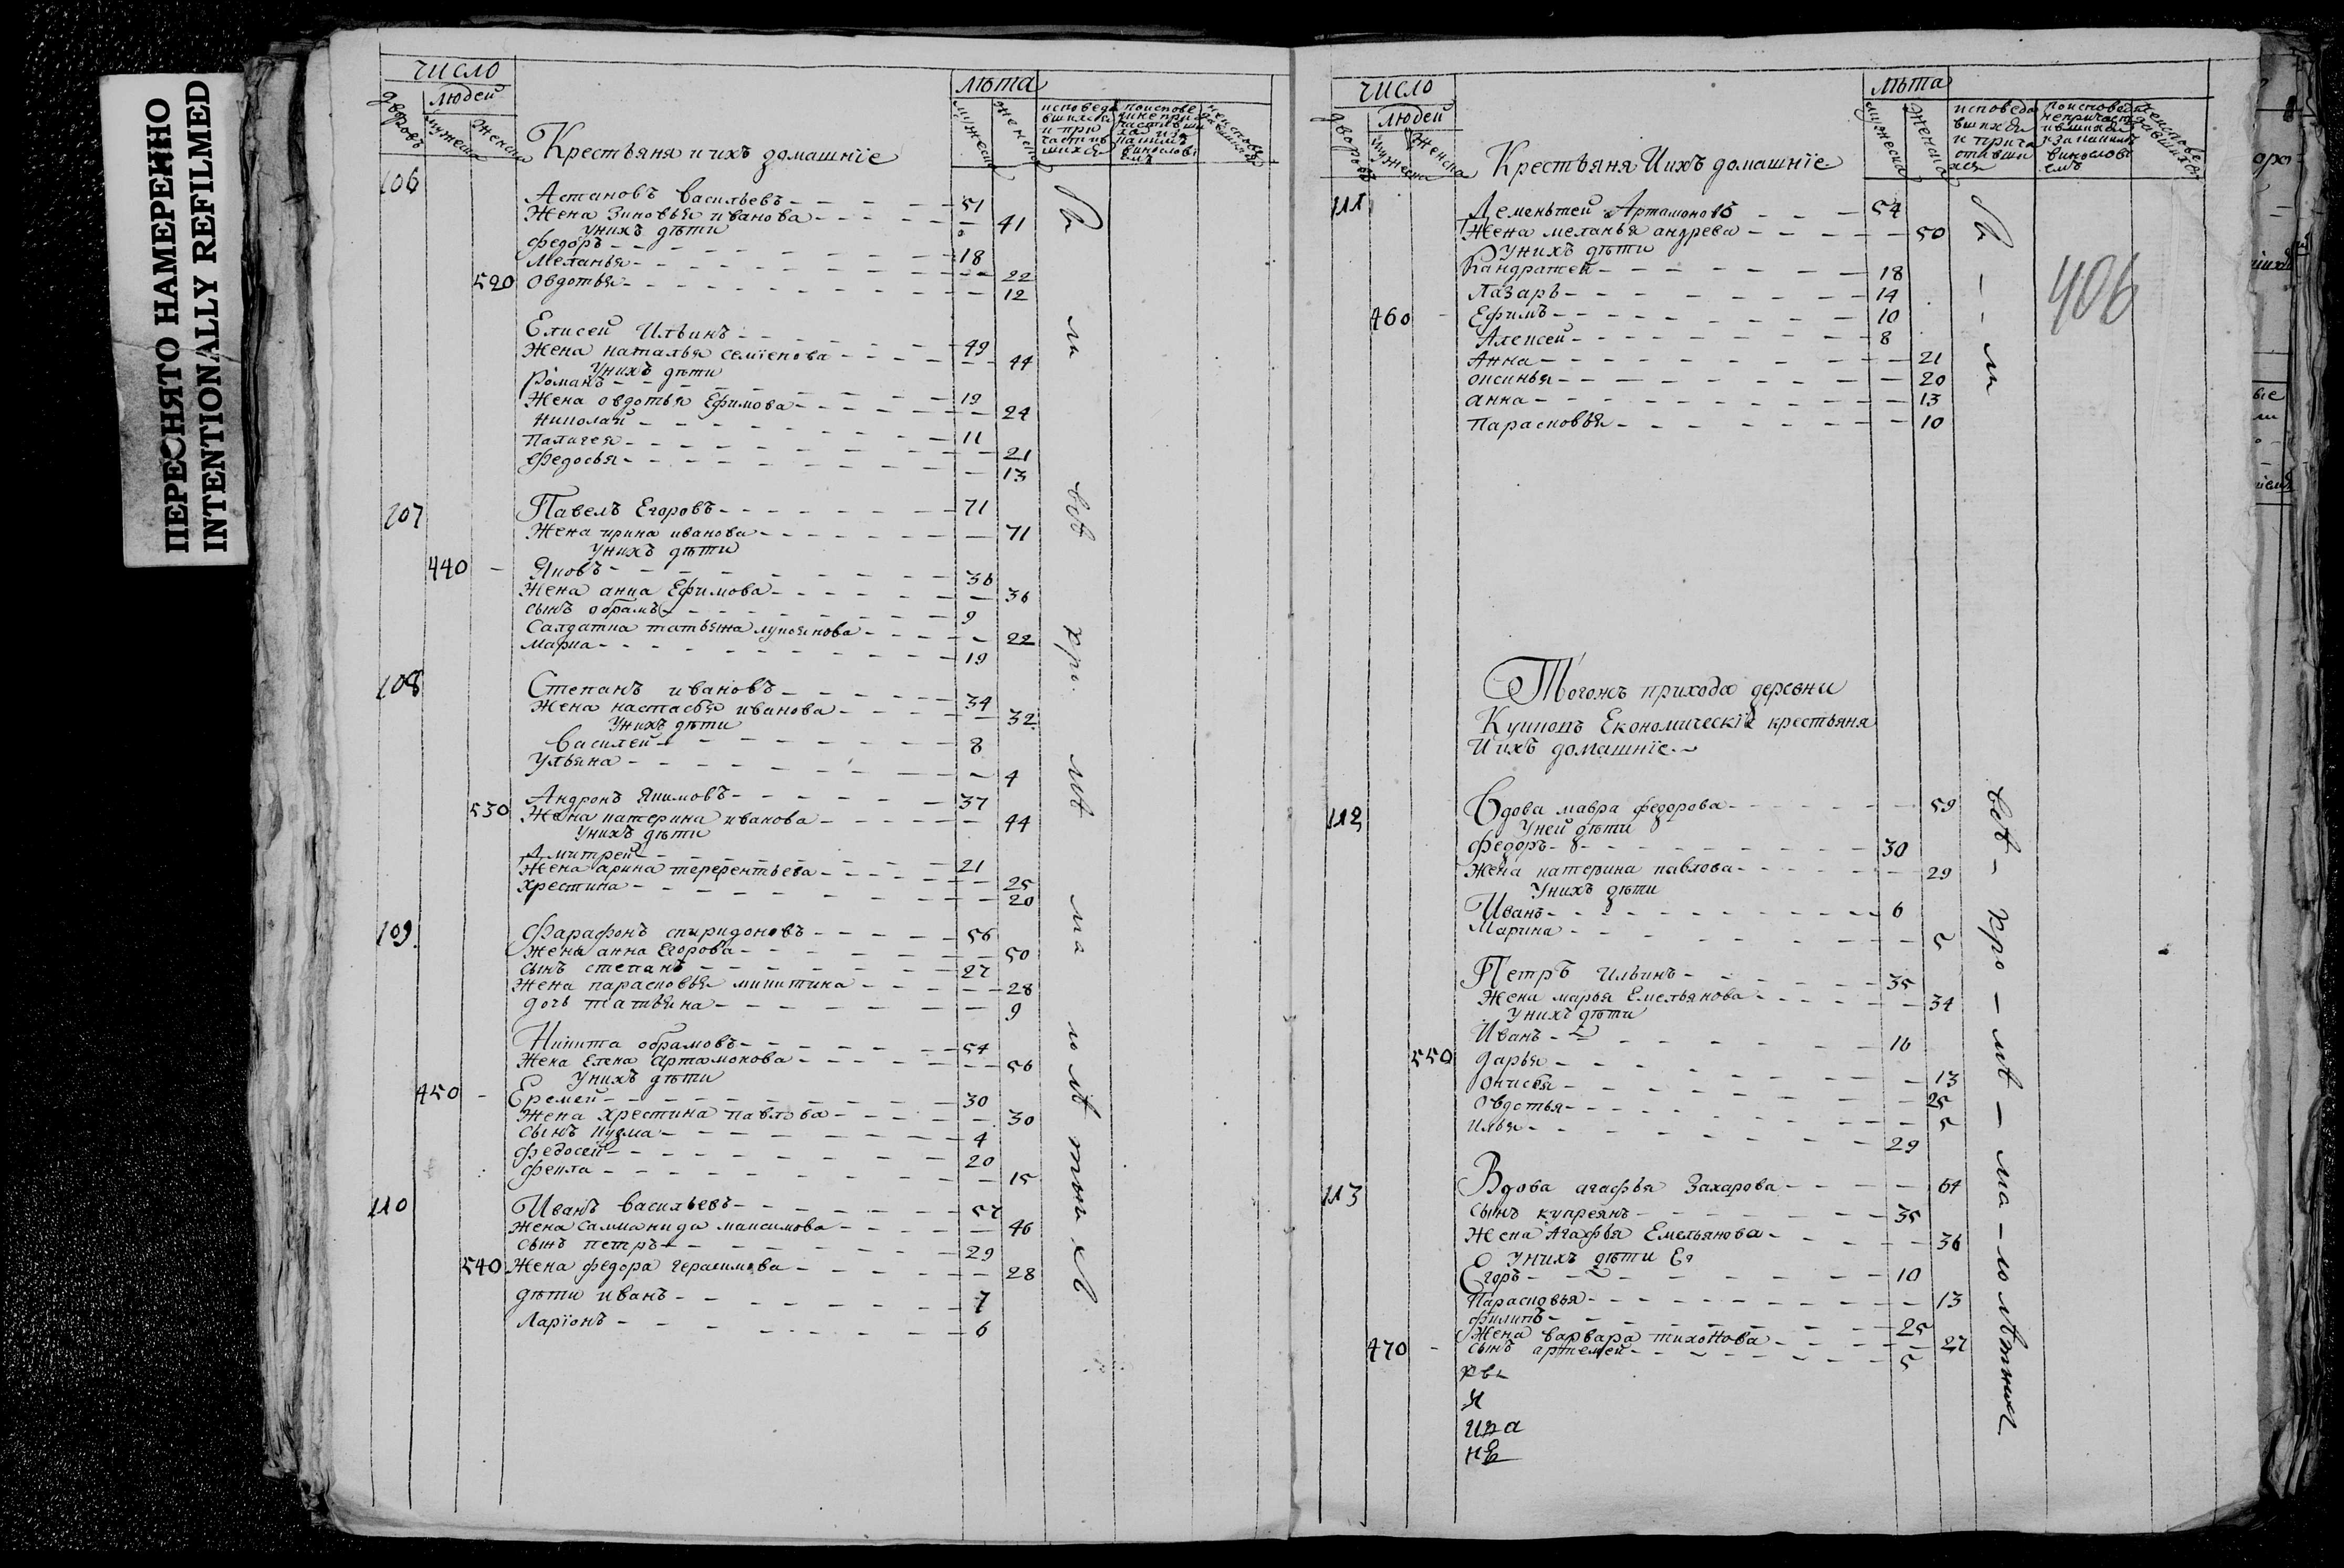 ПЕРЕСНЯТО НАМЕРЕННО
INTENTIONALLY REFILMED
число
людей
дворовъ
мужеска
женска
Крестьяня и ихъ домашнїе
лѣта
мужеска
женска
106
Астановъ Васильевъ 51
Жена Зиновья иванова 41
Унихъ дѣти
Федоръ 18
Меланья 22
520 Овдотья 12
Елисей Ильинъ 49
Жена наталья семїенова 44
Унихъ дѣти
Романъ 19
Жена овдотья Ефимова 24
Николай 11
Палагея 21
Федосья 13
107 Павелъ Егоровъ 71
Жена ирина иванова 71
Унихъ дѣти
440 Яковъ 36
Жена анна Ефимова 36
сынъ обрамъ 9
Салдатка татьяна лукоянова 22
Марка 19
108 Степанъ ивановъ 34
Жена настасья иванова 32
Унихъ дѣти
Василей 8
Ульяна 4
Андронъ Якимовъ 37
530 Жена катерина иванова 44
Унихъ дѣти
Дмитрей 21
Жена арина терерентьева 25
Хрестина 20
109 Фарафонъ спиридоновъ 56
Жена анна Егорова 50
сынъ степанъ 27
Жена парасковья микитина 28
дочь татьяна 9
Никита обрамовъ 54
Жена Елена артамонова 56
Унихъ дѣти
450 Еремей 30
Жена хрестина павлова 30
сынъ кузма 4
Федосей 20
Фекла 15
110 Иванъ Васильевъ 57
Жена Саламанида максимова 46
сынъ петръ 29
540 Жена федора герасимова 28
дѣти иванъ 7
Ларїонъ 6
число
людей
дворовъ
мужеска
женска
Крестьяня Иихъ домашнїе
лѣта
мужеска
женска
406
111 Дементей Артамоновъ 54
Жена меланья андрева 50
Унихъ дѣти
Кандратей 18
Лазарь 14
460 Ефимъ 10
Алексей 8
Анна 21
оксинья 20
анна 13
Парасковья 10
Тогожъ прихода деревни
Економическїе крестьяня
И ихъ домашнїе
112 Вдова мавра федорова 59
Уней дѣти
Федоръ 30
Жена катерина павлова 29
Унихъ дѣти
Иванъ 6
Марина 5
Петръ Ильинъ 35
Жена марья Емельянова 34
Унихъ дѣти
Иванъ 16
550 Дарья 13
Онисья 25
Овдотья 5
Илья 29
113 Вдова агафья Захарова 64
сынъ купреянъ 35
Жена Агафья Емельянова 36
Унихъ дѣти
Егоръ 10
Парасковья 13
Филипъ 25
Жена варвара тихонова 27
470 сынъ артемей 5